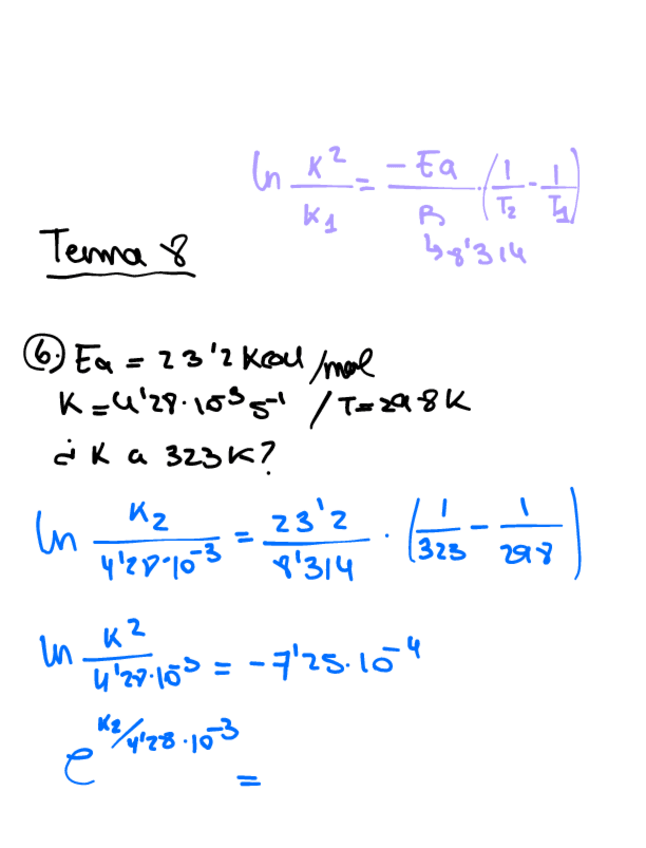 ln K2/K1 = -Ea/R · (1/T2 - 1/T1)
↳ 8'314
Tema 8
⑥. Ea = 23'2 Kcal/mol
K = 4'28·10⁻³ s⁻¹ / T = 298 K
¿ K a 323 K?
ln K₂/4'28·10⁻³ = 23'2/8'314 · (1/323 - 1/298)
ln K2/4'28·10⁻³ = -7'25·10⁻⁴
e^(K2/4'28·10⁻³) =